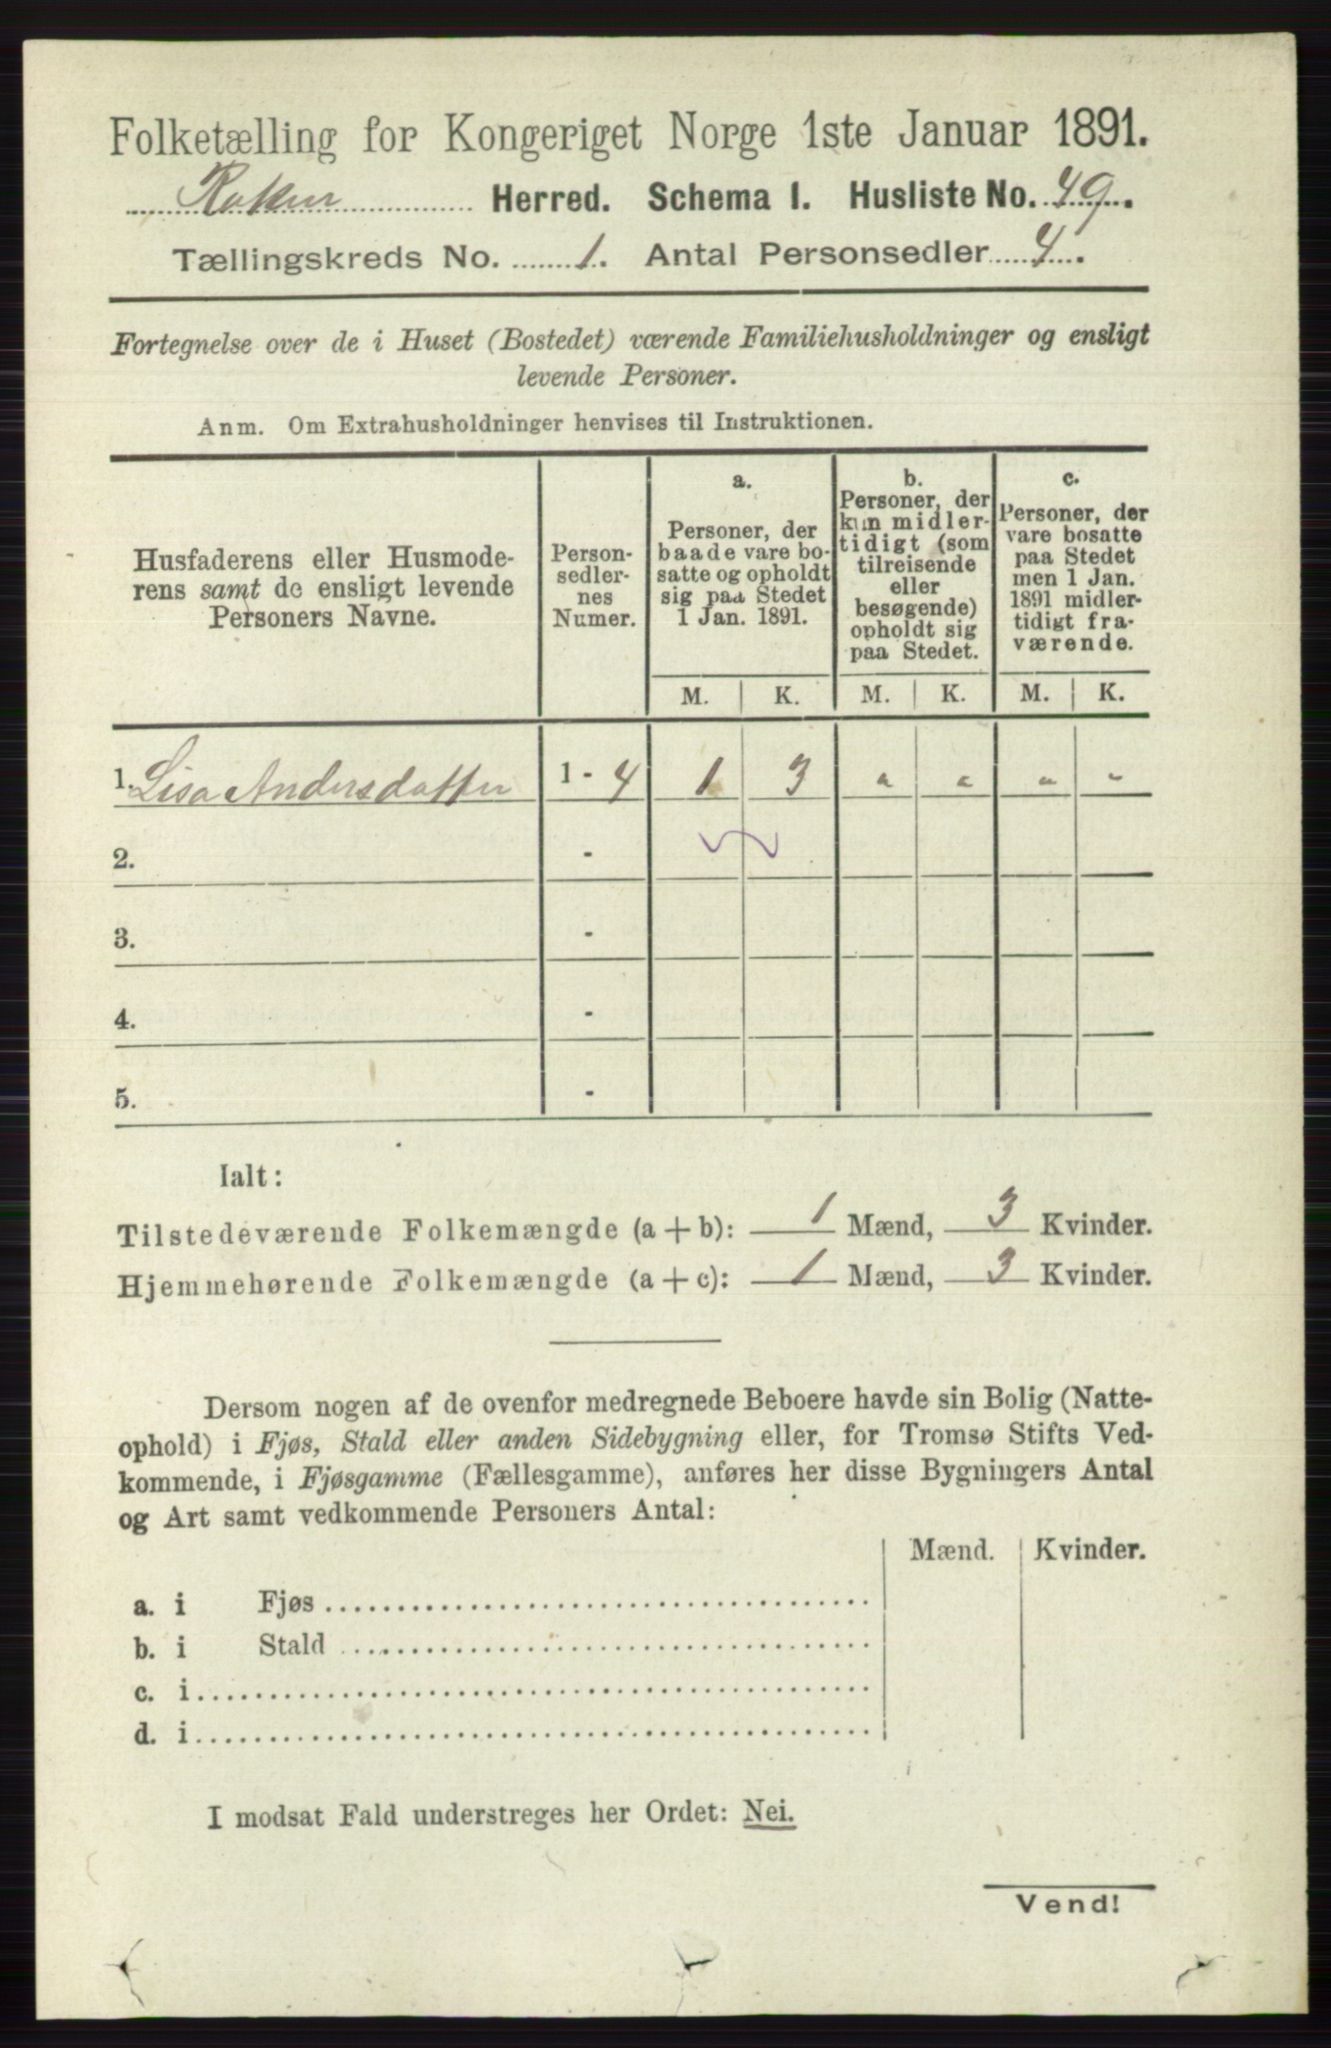 Folketælling for Kongeriget Norge 1ste Januar 1891.
Røken Herred. Schema I. Husliste No. 49.
Tællingskreds No. 1. Antal Personsedler 4.
Fortegnelse over de i Huset (Bostedet) værende Familiehusholdninger og ensligt
levende Personer.
Anm. Om Extrahusholdninger henvises til Instruktionen.
Husfaderens eller Husmode-
rens samt de ensligt levende
Personers Navne.
Person-
sedler-
nes
Numer.
a.
Personer, der
baade vare bo-
satte og opholdt
sig paa Stedet
1 Jan. 1891.
b.
Personer, der
kun midler-
tidigt (som
tilreisende
eller
besøgende)
opholdt sig
paa Stedet.
c.
Personer, der
vare bosatte
paa Stedet
men 1 Jan.
1891 midler-
tidigt fra-
værende.
M. K. M. K. M. K.
1. Lisa Andersdatter 1 - 4 1 3 " " " "
2. -
3. -
4. -
5. -
Ialt:
Tilstedeværende Folkemængde (a + b): 1 Mænd, 3 Kvinder.
Hjemmehørende Folkemængde (a + c): 1 Mænd, 3 Kvinder.
Dersom nogen af de ovenfor medregnede Beboere havde sin Bolig (Natte-
ophold) i Fjøs, Stald eller anden Sidebygning eller, for Tromsø Stifts Ved-
kommende, i Fjøsgamme (Fællesgamme), anføres her disse Bygningers Antal
og Art samt vedkommende Personers Antal:
Mænd. Kvinder.
a. i Fjøs
b. i Stald
c. i
d. i
I modsat Fald understreges her Ordet: Nei.
Vend!